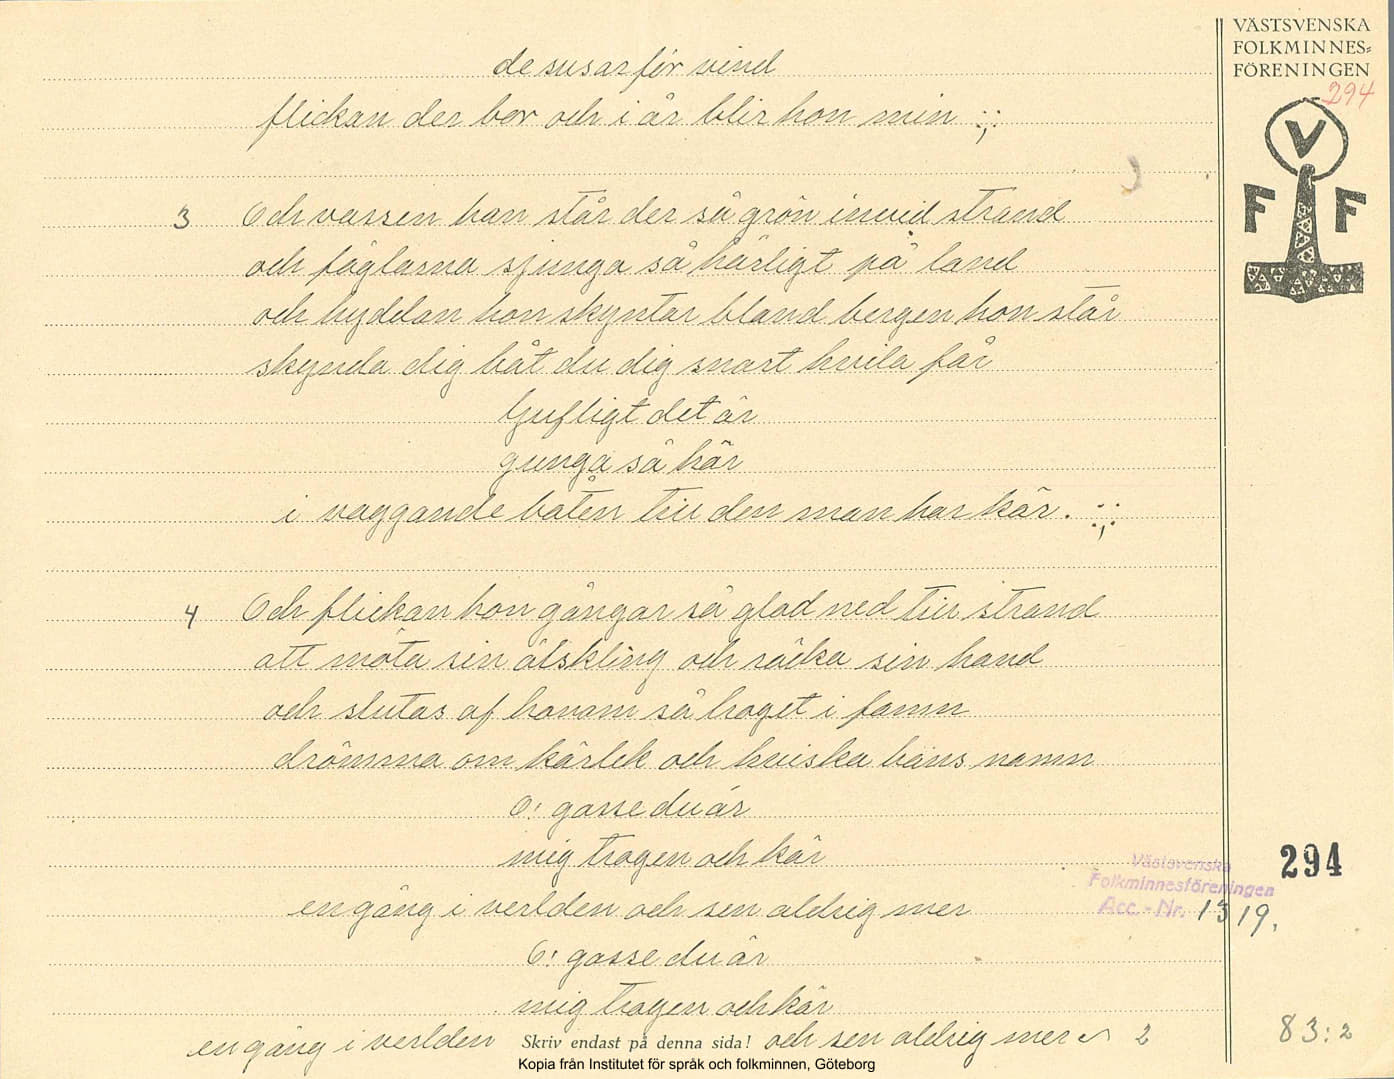 VÄSTSVENSKA
FOLKMINNES=
FÖRENINGEN
294
V
F F
de susar för vind
flickan der bor och i år blir hon min :,:
3 Och vassen han står der så grön invid strand
och foglarna sjunga så härligt på land
och hyddan hon skyntar bland bergen hon står
skynda dig båt du dig snart hvila får
ljufligt det är
gunga så här
i vaggande båten till den man har kär. :,:
4 Och flickan hon gångar så glad ned till strand
att möta sin älskling och räcka sin hand
och slutas af honom så troget i famn
drömma om kärlek och hviska hans namn
O! gosse du är
mig trogen och kär
en gång i verlden och sen aldrig mer
O! gosse du är
mig trogen och kär
en gång i verlden och sen aldrig mer 2
Skriv endast på denna sida!
Kopia från Institutet för språk och folkminnen, Göteborg
294
Västsvenska
Folkminnesföreningen
Acc.-Nr. 1319.
83:2